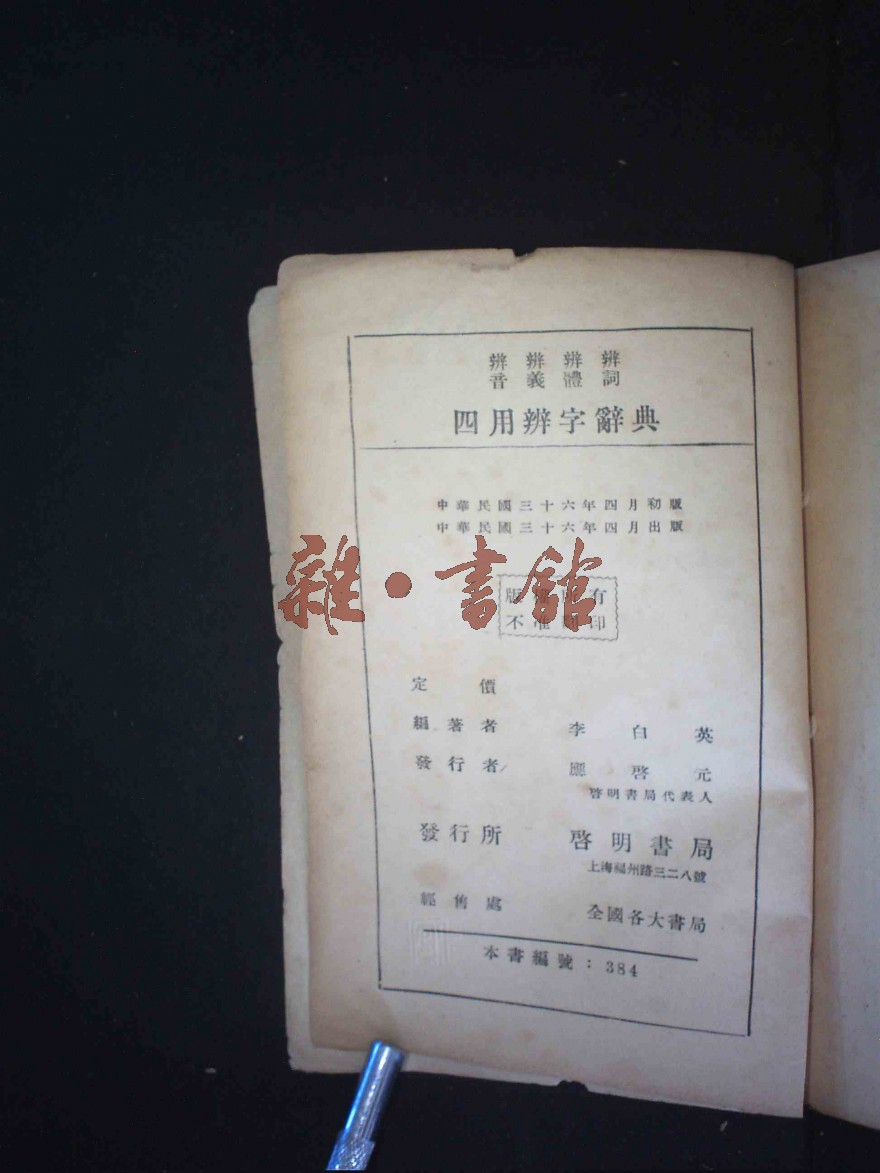 辨辨辨辨
音義體詞
四用辨字辭典
中華民國三十六年四月初版
中華民國三十六年四月出版
雜·書館
版權所有
不准翻印
定價
編著者 李白英
發行者 應啓元
啓明書局代表人
發行所 啓明書局
上海福州路三二八號
經售處 全國各大書局
本書編號：384